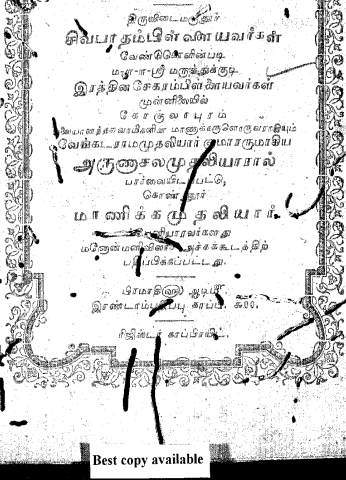 திருவிடைமருதூர்
சிவபாதம்பிள்ளையவர்கள்
வேண்டுகோளின்படி
ம-ள-ள-ஸ்ரீ மருத்துக்குடி
இரத்தினசேகரம்பிள்ளையவர்கள்
முன்னிலையில்
கோகுலாபுரம்
மாணாக்கருளொருவராகியும்
வேங்கடராமமுதலியார் குமாரருமாகிய
அருணாசலமுதலியாரால்
பார்வையிடப்பட்டு,
கொண்ணூர்
மாணிக்கமுதலியார்
மனோன்மணிவிலாச அச்சுக்கூடத்திற்
பதிப்பிக்கப்பட்டது.
பிரமாதி௵ ஆடி௴
இரண்டாம்பதிப்பு காப்பி
ரிஜிஸ்டர் காப்பிரயிட்.
Best copy available